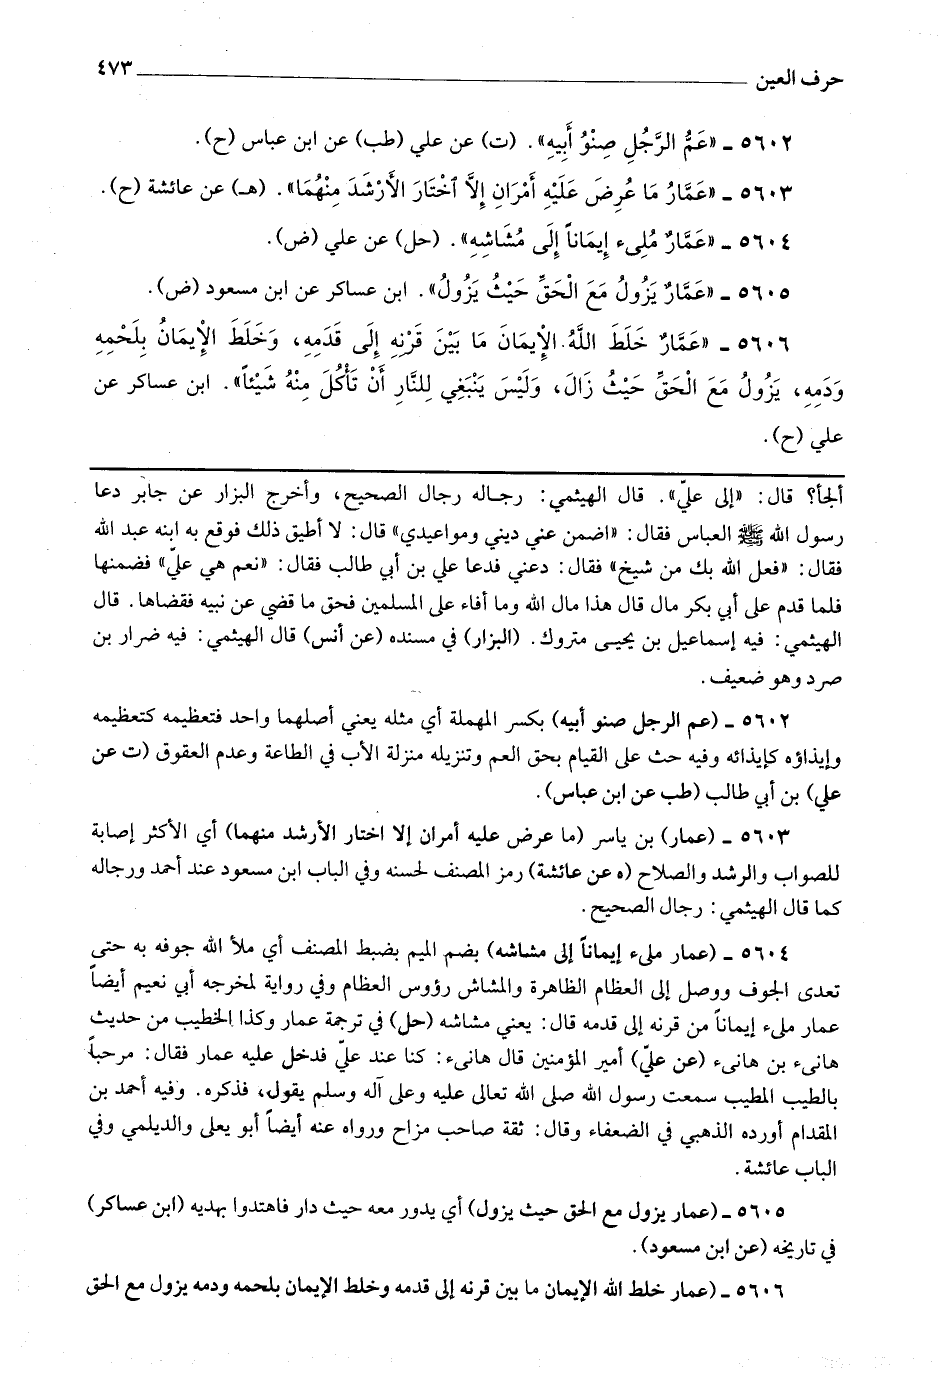 حرف العين ٤٧٣
٥٦٠٢ ـ «عَمُّ الرَّجُلِ صِنْوُ أَبِيهِ». (ت) عن علي (طب) عن ابن عباس (ح).
٥٦٠٣ ـ «عَمَّارُ مَا عُرِضَ عَلَيْهِ أَمْرَانِ إِلاَّ ٱخْتَارَ الأَرْشَدَ مِنْهُمَا». (هـ) عن عائشة (ح).
٥٦٠٤ ـ «عَمَّارٌ مُلِىء إِيمَاناً إِلَى مُشَاشِهِ». (حل) عن علي (ض).
٥٦٠٥ ـ «عَمَّارٌ يَزُولُ مَعَ الْحَقِّ حَيْثُ يَزُولُ». ابن عساكر عن ابن مسعود (ض).
٥٦٠٦ ـ «عَمَّارٌ خَلَطَ اللَّهُ الإِيمَانَ مَا بَيْنَ قَرْنِهِ إِلَى قَدَمِهِ، وَخَلَطَ الإِيمَانُ بِلَحْمِهِ
وَدَمِهِ، يَزُولُ مَعَ الْحَقِّ حَيْثُ زَالَ، وَلَيْسَ يَنْبَغِي لِلنَّارِ أَنْ تَأْكُلَ مِنْهُ شَيْئاً». ابن عساكر عن
علي (ح).
ألجأ؟ قال: «إلى عليّ». قال الهيثمي: رجاله رجال الصحيح، وأخرج البزار عن جابر دعا
رسول الله ﷺ العباس فقال: «اضمن عني ديني ومواعيدي» قال: لا أطيق ذلك فوقع به ابنه عبد الله
فقال: «فعل الله بك من شيخ» فقال: دعني فدعا علي بن أبي طالب فقال: «نعم هي عليّ» فضمنها
فلما قدم على أبي بكر مال قال هذا مال الله وما أفاء على المسلمين فحق ما قضي عن نبيه فقضاها. قال
الهيثمي: فيه إسماعيل بن يحيى متروك. (البزار) في مسنده (عن أنس) قال الهيثمي: فيه ضرار بن
صرد وهو ضعيف.
٥٦٠٢ ـ (عم الرجل صنو أبيه) بكسر المهملة أي مثله يعني أصلهما واحد فتعظيمه كتعظيمه
وإيذاؤه كإيذائه وفيه حث على القيام بحق العم وتنزيله منزلة الأب في الطاعة وعدم العقوق (ت عن
علي) بن أبي طالب (طب عن ابن عباس).
٥٦٠٣ ـ (عمار) بن ياسر (ما عرض عليه أمران إلا اختار الأرشد منهما) أي الأكثر إصابة
للصواب والرشد والصلاح (ه عن عائشة) رمز المصنف لحسنه وفي الباب ابن مسعود عند أحمد ورجاله
كما قال الهيثمي: رجال الصحيح.
٥٦٠٤ ـ (عمار ملىء إيماناً إلى مشاشه) بضم الميم بضبط المصنف أي ملأ الله جوفه به حتى
تعدى الجوف ووصل إلى العظام الظاهرة والمشاش رؤوس العظام وفي رواية لمخرجه أبي نعيم أيضاً
عمار ملىء إيماناً من قرنه إلى قدمه قال: يعني مشاشه (حل) في ترجمة عمار وكذا الخطيب من حديث
هانىء بن هانىء (عن عليّ) أمير المؤمنين قال هانىء: كنا عند عليّ فدخل عليه عمار فقال: مرحباً
بالطيب المطيب سمعت رسول الله صلى الله تعالى عليه وعلى آله وسلم يقول، فذكره. وفيه أحمد بن
المقدام أورده الذهبي في الضعفاء وقال: ثقة صاحب مزاح ورواه عنه أيضاً أبو يعلى والديلمي وفي
الباب عائشة.
٥٦٠٥ ـ (عمار يزول مع الحق حيث يزول) أي يدور معه حيث دار فاهتدوا بهديه (ابن عساكر)
في تاريخه (عن ابن مسعود).
٥٦٠٦ ـ (عمار خلط الله الإيمان ما بين قرنه إلى قدمه وخلط الإيمان بلحمه ودمه يزول مع الحق